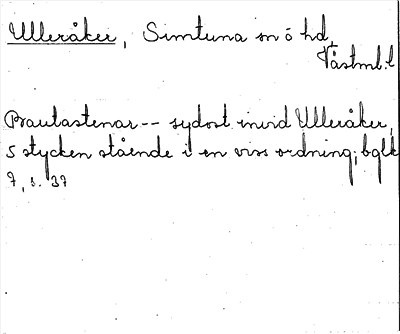 Ulleråker, Simtuna sn o hd,
Västml.l
Bautastenar -- sydost invid Ulleråker,
5 stycken stående i en viss ordning; bglk
7, s. 37